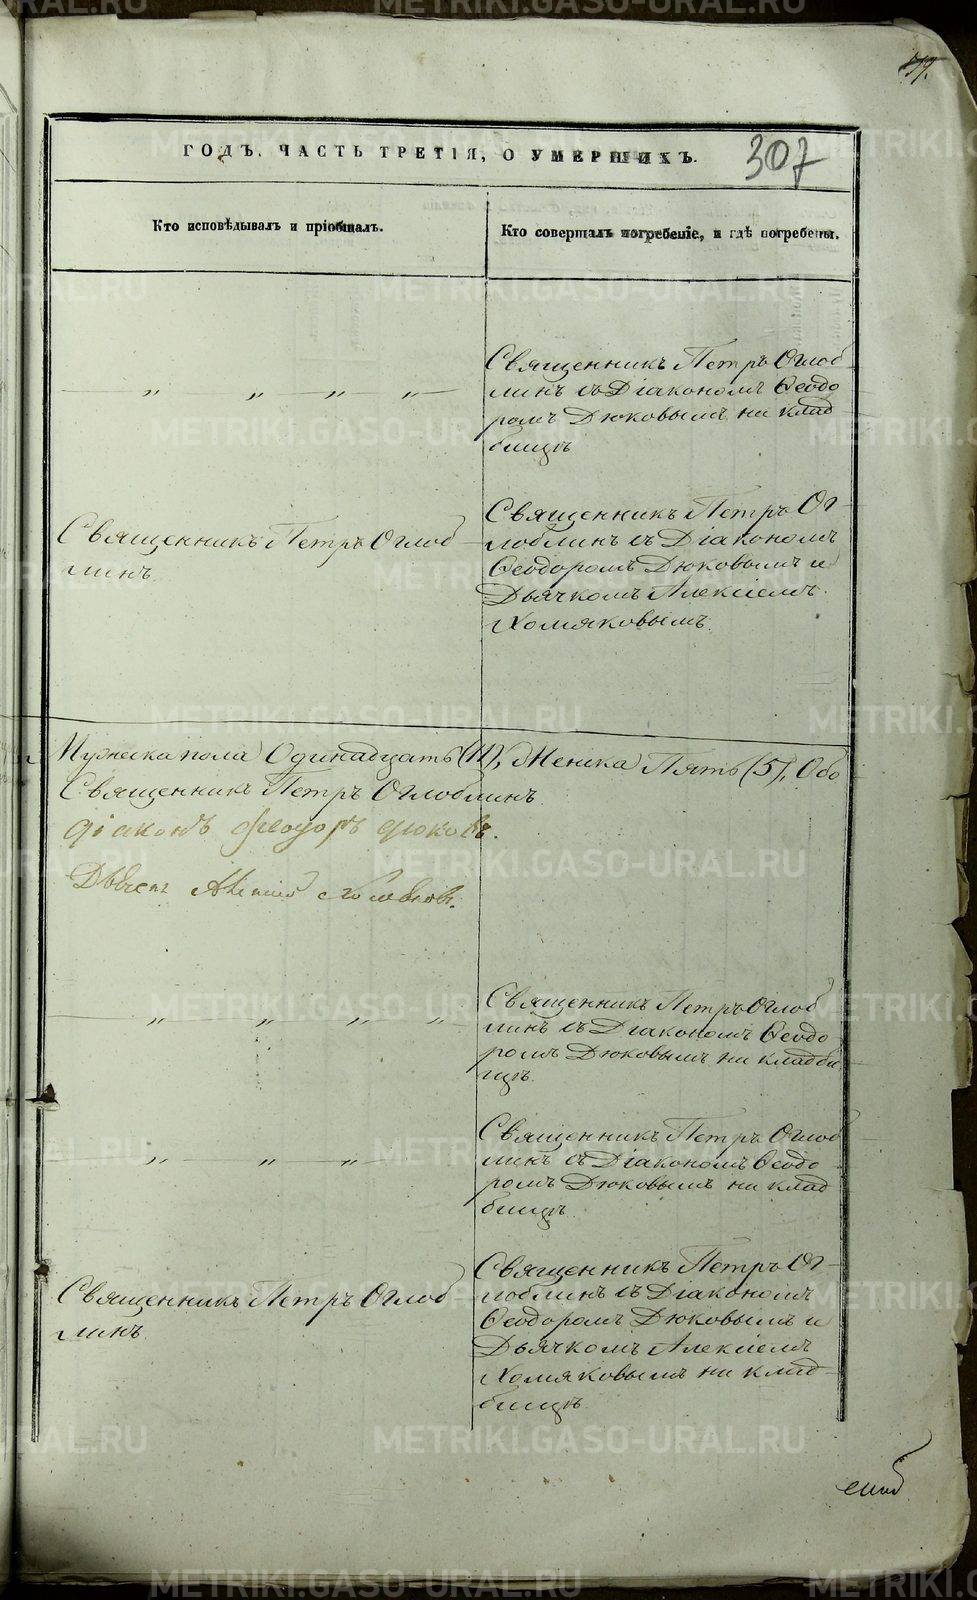 307
ГОДЪ. ЧАСТЬ ТРЕТІЯ, О УМЕРШИХЪ.
Кто исповѣдывалъ и пріобщалъ.
Кто совершалъ погребеніе, и гдѣ погребены.
Священникъ Петръ Оглоб
линъ съ Діакономъ Ѳеодо
ромъ Дюковымъ на клад
бищѣ
Священникъ Петръ Оглоб
линъ.
Священникъ Петръ Ог-
лоблинъ съ Діакономъ
Ѳеодоромъ Дюковымъ и
Дьячкомъ Алексіемъ
Хомяковымъ.
Мужеска пола Одинадцать (11), Женска Пять (5), Обо
Священникъ Петръ Оглоблинъ
Діаконъ Феодоръ Дюковъ.
Дьячекъ Алексій Хомяковъ.
Священникъ Петръ Оглоб
линъ съ Діакономъ Ѳеодо
ромъ Дюковымъ на кладби
щѣ.
Священникъ Петръ Оглоб
линъ съ Діакономъ Ѳеодо
ромъ Дюковымъ на клад
бищѣ.
Священникъ Петръ Оглоб
линъ.
Священникъ Петръ Ог-
лоблинъ съ Діакономъ
Ѳеодоромъ Дюковымъ и
Дьячкомъ Алексіемъ
Хомяковымъ на клад-
бищѣ.
METRIKI.GASO-URAL.RU